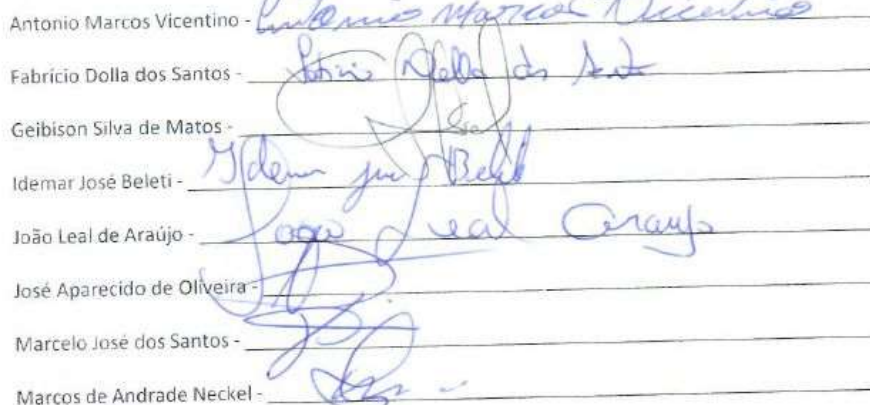 Antonio Marcos Vicentino - Antonio Marcos Vicentino
Fabrício Dolla dos Santos - Dolla dos
Geibison Silva de Matos -
Idemar José Beleti - Idemar José Beleti
João Leal de Araújo - João Leal Araujo
José Aparecido de Oliveira -
Marcelo José dos Santos -
Marcos de Andrade Neckel -